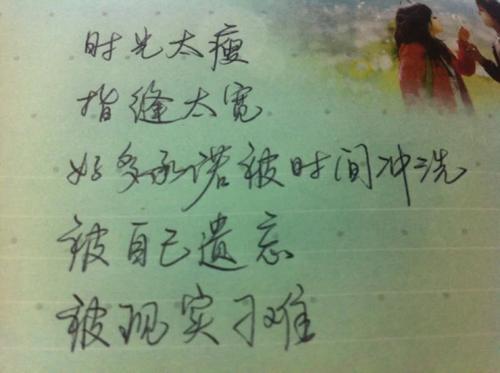 时光太瘦
指缝太宽
好多承诺被时间冲洗
被自己遗忘
被现实刁难